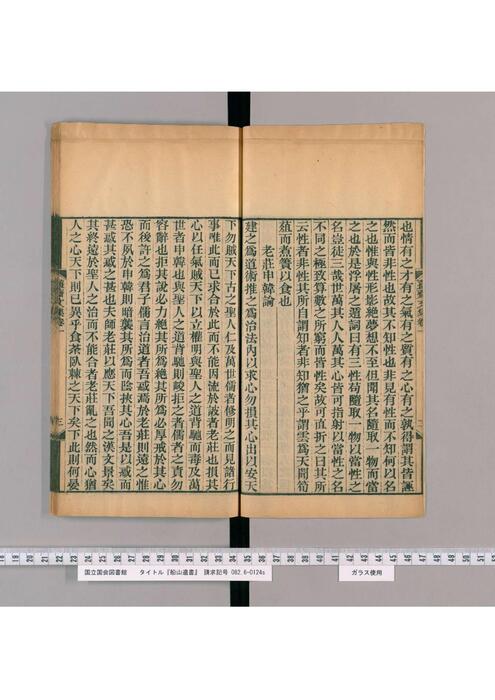 也情有之才有之氣有之質有之心有之孰得謂其皆誣
然而皆非性也故其不知性也非見有性而不知何以名
之也惟與性形影絶夢想不至但聞其名隨取一物而當
之也於是浮屠之遁詞曰有三性苟隨取一物以當性之
名豈徒三哉世萬其人人萬其心皆可指射以當性之名
不同之極致算數之所窮而皆性矣故可直折之曰其所
云性者非性其所自謂知者非知猶之乎謂雲爲天聞筍
菹而煮簀以食也
老莊申韓論
建之爲道術推之爲治法內以求心勿損其心出以安天
下勿賊天下古之聖人仁及萬世儒者修明之而見諸行
事唯此而已求合於此而不能因流於詖者老莊也損其
心以任氣賊天下以立權明與聖人之道背馳而毒及萬
世者申韓也與聖人之道背馳則峻拒之者儒者之責勿
容辭也拒其說必力絶其所爲絶其所爲必厚戒於其心
而後許之爲君子儒言治道者吾惑焉於老莊則遠之惟
恐不夙於申韓則暗襲其所爲而陰挾其心吾是以惑而
甚惑其惑之甚也夫師老莊以應天下吾聞之漢文景矣
其終遠於聖人之治而不能合者老莊亂之也然而心猶
人之心天下則已異乎食荼臥棘之天下矣下此則何晏
国立国会図書館 タイトル『船山遺書』 請求記号 082.6-O124s
ガラス使用